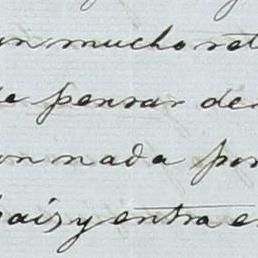 un mucho ret
de pensar de
on nada por
pais y entra e